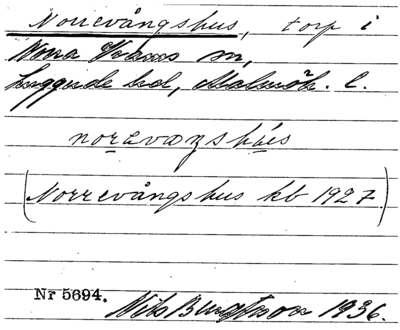 Norrevångshus, torp i
Norra Vrams sn,
Luggude hd, Malmöh. l.
norævaŋshús
(Norrevångshus kb 1927)
Nr 5694. Nils Bengtsson 1936.